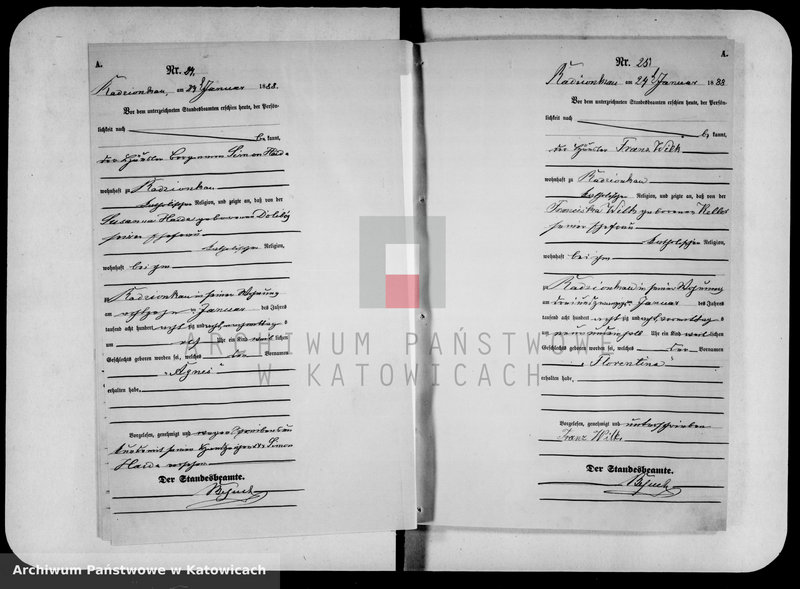 A.
Nr. 24.
Radzionkau, am 23 Januar 1888.
Vor dem unterzeichneten Standesbeamten erschien heute, der Persön-
lichkeit nach
be kannt,
der Häusler Simon Haida
wohnhaft zu Radzionkau
katholischer Religion, und zeigte an, daß von der
Susanna Haida geborenen
seiner Ehefrau
katholischer Religion,
wohnhaft bei ihm
zu Radzionkau in seiner Wohnung
am Januar des Jahres
tausend acht hundert acht und achtzig nachmittags
um acht Uhr ein Kind weib lichen
Geschlechts geboren worden sei, welches den Vornamen
"Agnes"
erhalten habe.
Vorgelesen, genehmigt und wegen
mit seinem Simon
Haida versehen
Der Standesbeamte.
A.
Nr. 25.
Radzionkau am 24 Januar 1888
Vor dem unterzeichneten Standesbeamten erschien heute, der Persön-
lichkeit nach
be kannt,
der Häusler Franz Wilk
wohnhaft zu Radzionkau
katholischer Religion, und zeigte an, daß von der
Franciska Wilk geborenen
seiner Ehefrau
katholischer Religion,
wohnhaft bei ihm
zu Radzionkau in seiner Wohnung
am drei und zwanzigsten Januar des Jahres
tausend acht hundert acht und achtzig vormittags
um neun einhalb Uhr ein Kind weib lichen
Geschlechts geboren worden sei, welches den Vornamen
"Florentina"
erhalten habe.
Vorgelesen, genehmigt und unterschrieben
Franz Wilk
Der Standesbeamte.
ARCHIWUM PAŃSTWOWE
W KATOWICACH
Archiwum Państwowe w Katowicach